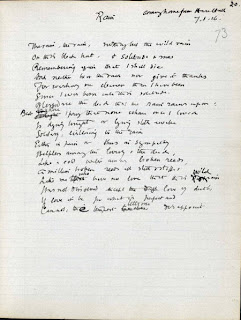 20.
Rain
going home from Hare Hall
7.1.16.
73
The rain, the rain, nothing but the wild rain
On this bleak hut, & solitude & me
Remembering again that I shall die
And neither hear the rain nor give thanks
For washing me cleaner than I have been
Since I was born into this solitude.
Blessed are the dead that the rain rains upon:
But pray that none whom once I loved
Is dying tonight or lying still awake
Solitary, listening to the rain
Either in pain or thus in sympathy
Helpless among the living & the dead,
Like a cold water among broken reeds,
Myriads of reeds all still & stiff
Like me who have no love that this wild rain
Has not dissolved except the love of death,
If love it be for what is perfect and
Cannot, the tempest tells me, disappoint